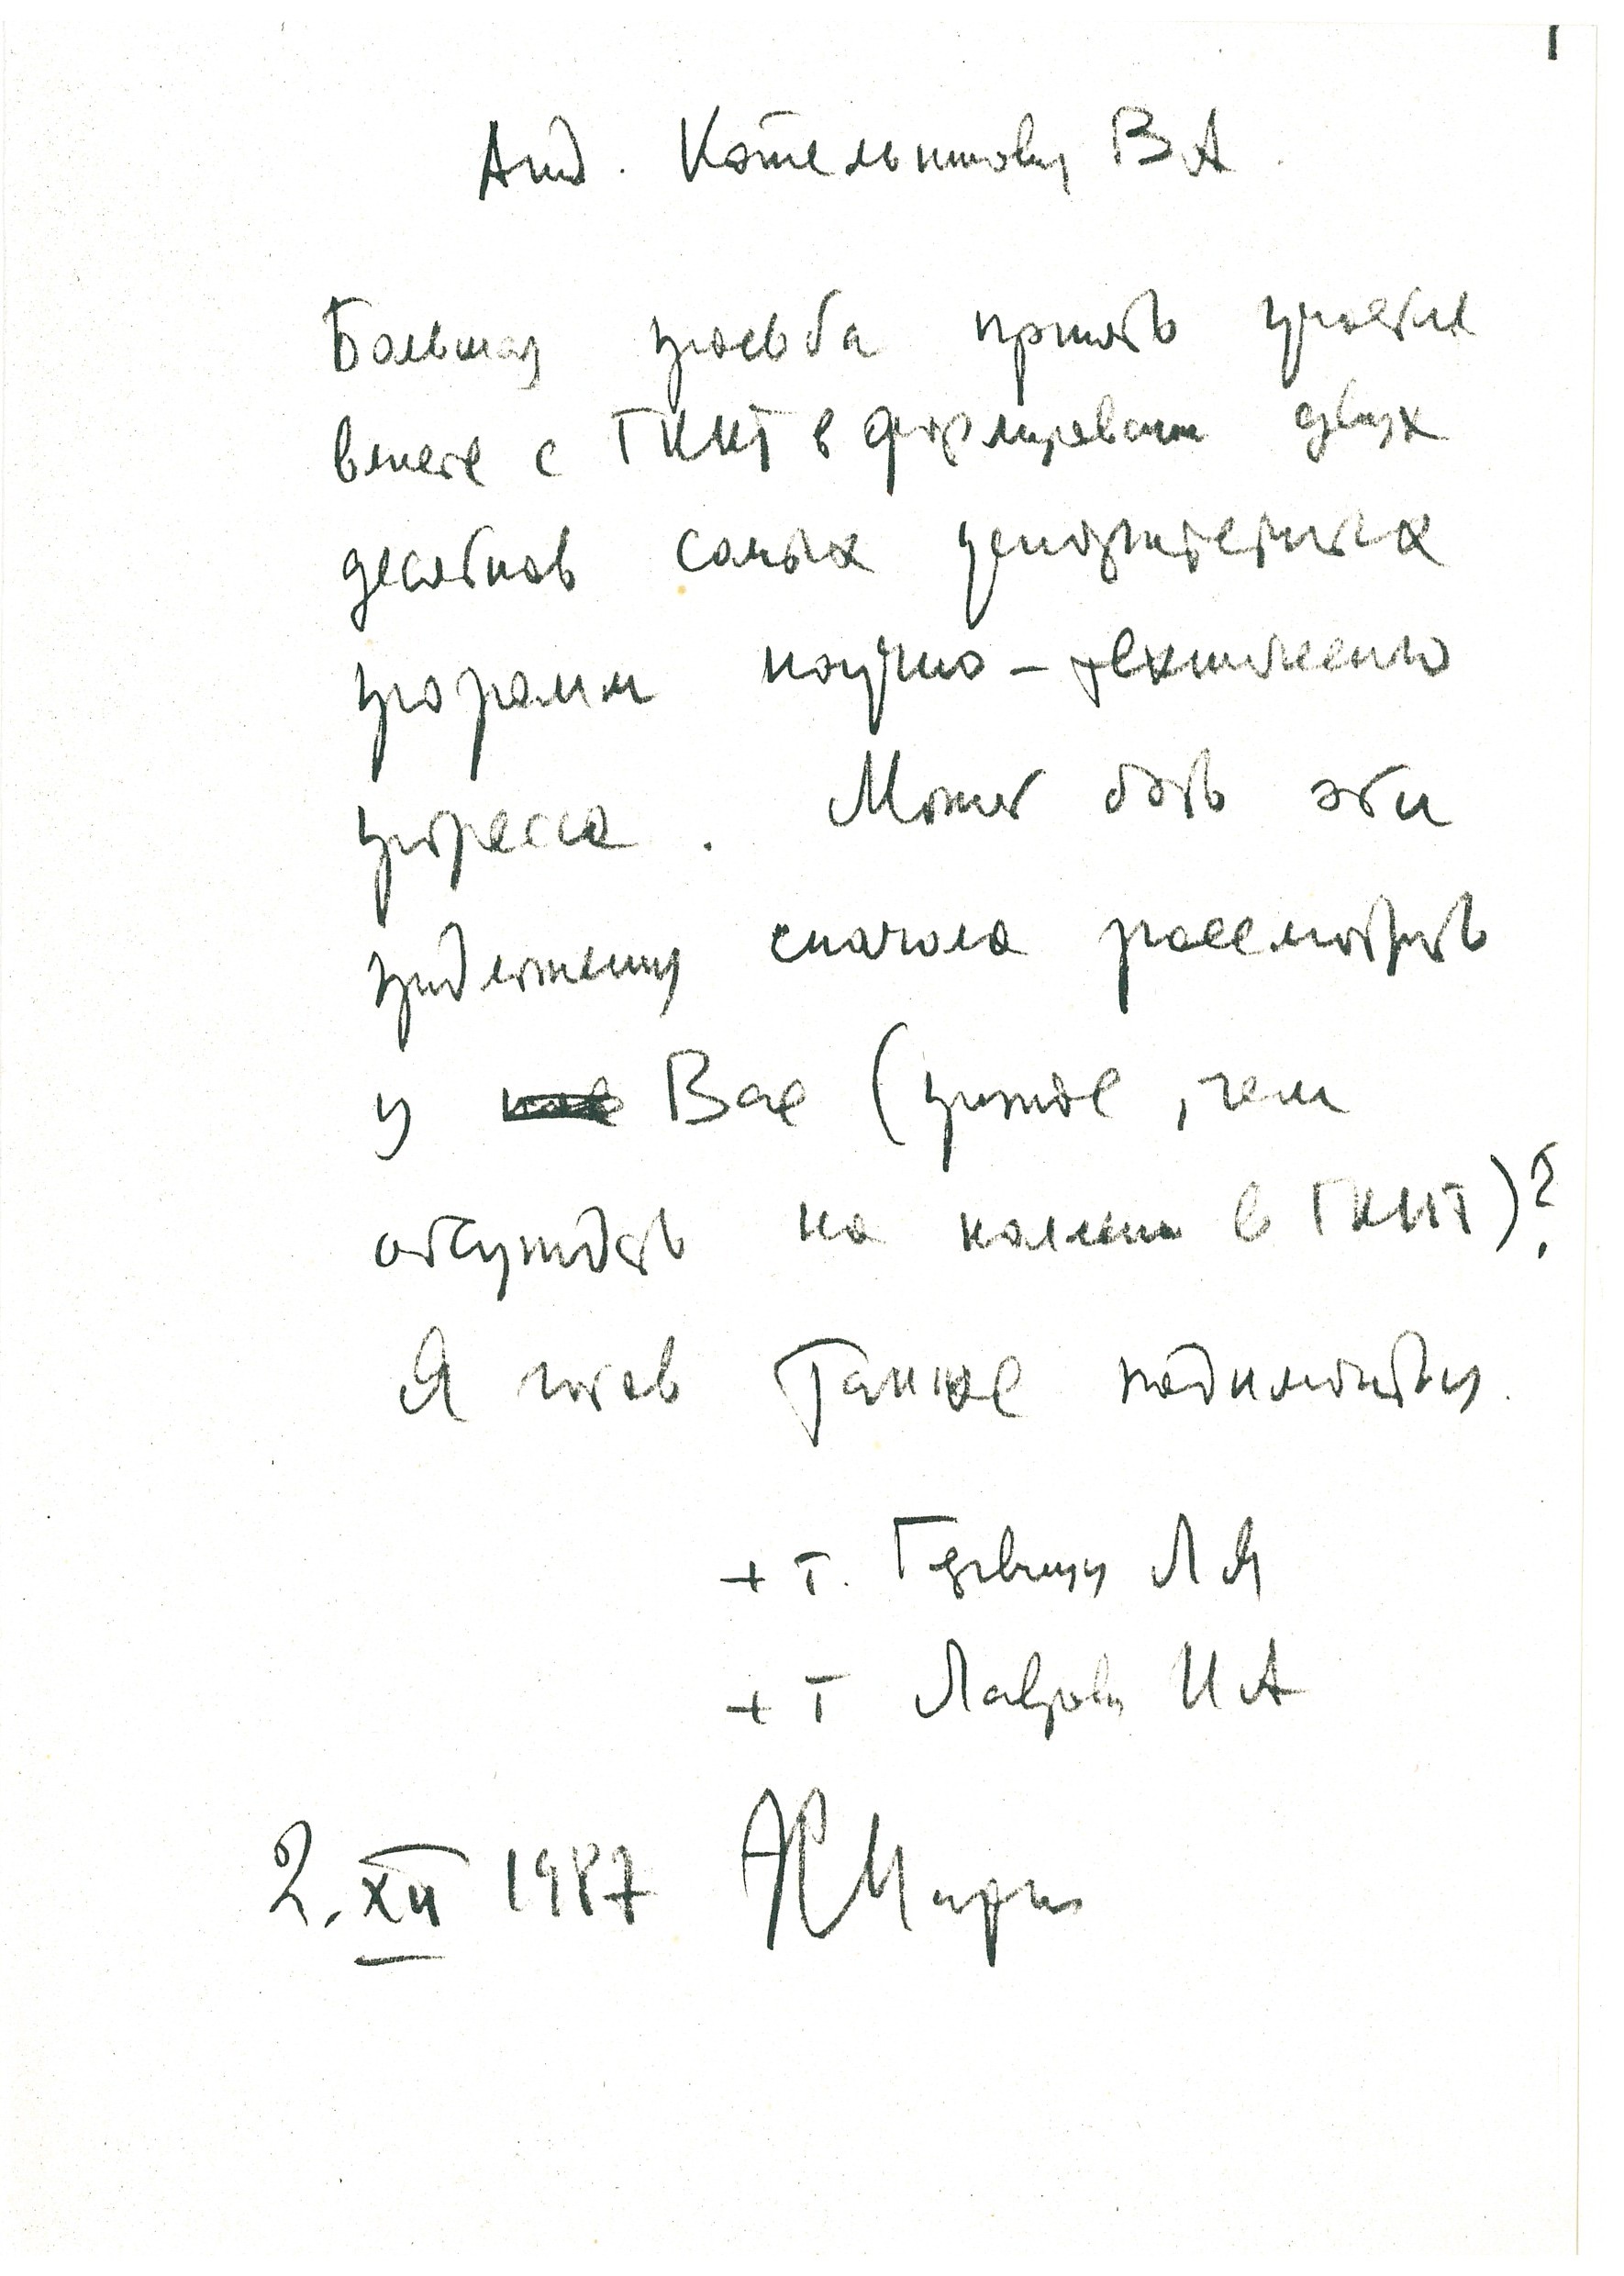 1
Акад. Котельникову В А.
Большая просьба принять участие
вместе с ГКНТ в формировании двух
десятков самых приоритетных
программ научно-технического
прогресса. Может быть эти
предложения сначала рассмотреть
у Вас (прежде, чем
обсуждать на коллегии в ГКНТ)?
Я готов также подключиться.
+ т. Л Я
+ т Лаврову И А
2. XII 1987 ГМарчук